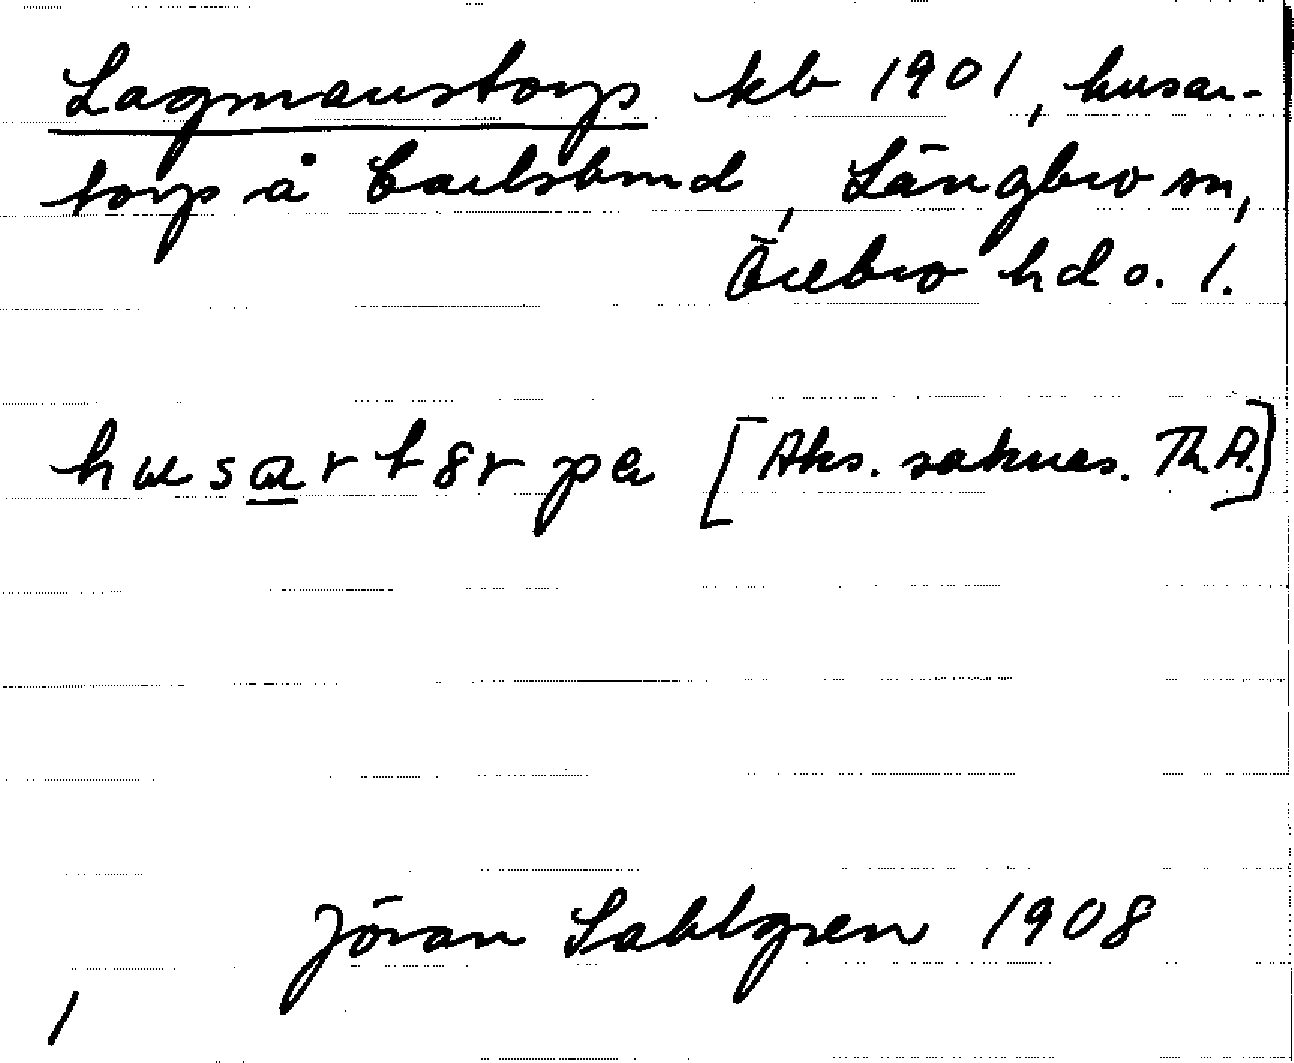 Lagmanstorp kb 1901, husar-
torp å Carlslund, Längbro sn,
Örebro hd o. l.
husart8rpa [Aks. saknas. Th.A.]
Jöran Sahlgren 1908
1